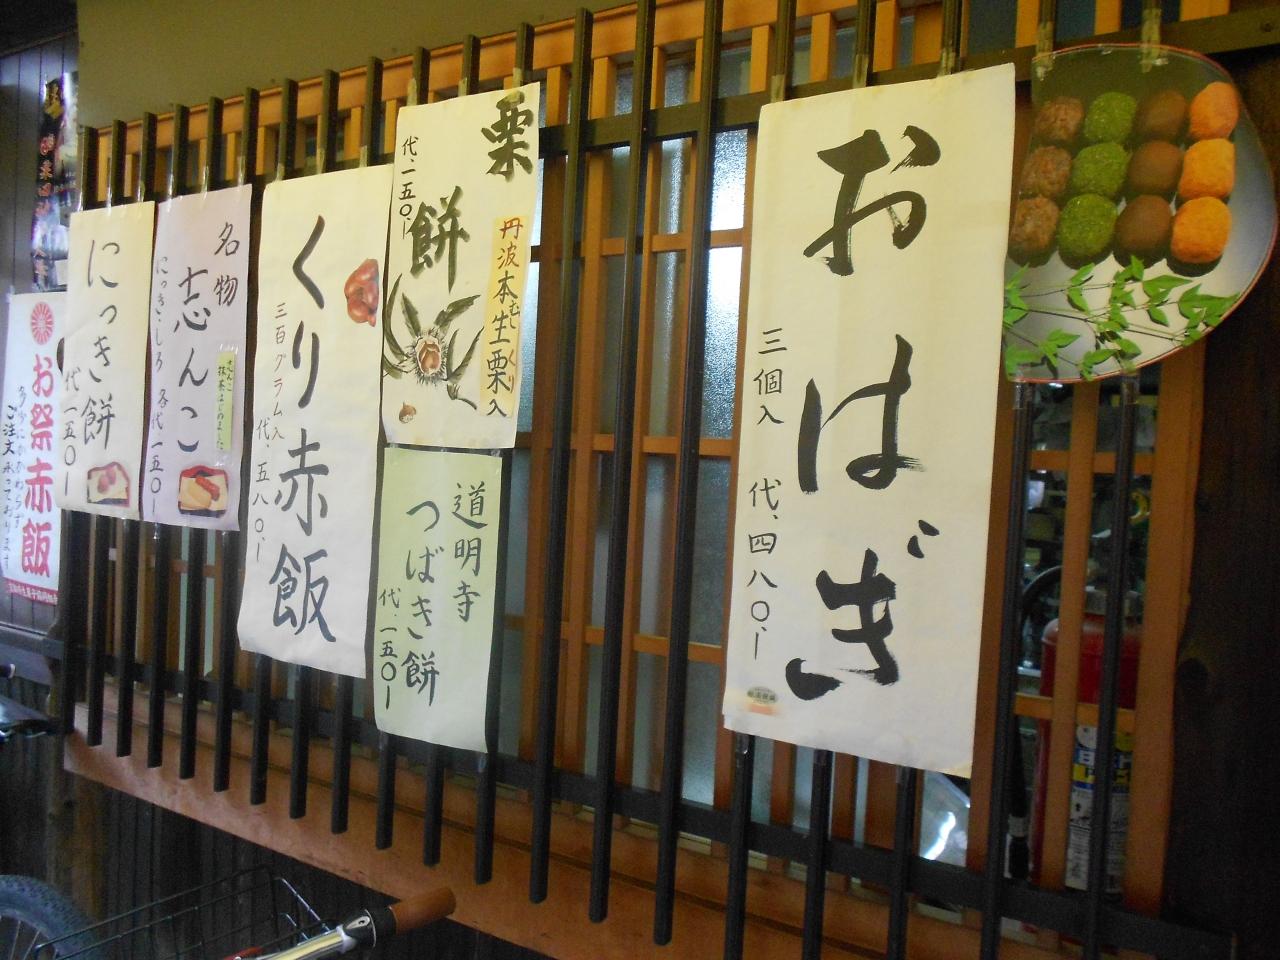 おはぎ
三個入 代、四八〇、ー
栗餅
丹波本生栗入
むし くり
代、一五〇、ー
道明寺
つばき餅
代、一五〇ー
くり赤飯
三百グラム入
代、五八〇、ー
名物
志んこ
にっき、しろ 各代一五〇ー
にっき餅
代一五〇ー
お祭赤飯
多少にかかわらず
ご注文承っております